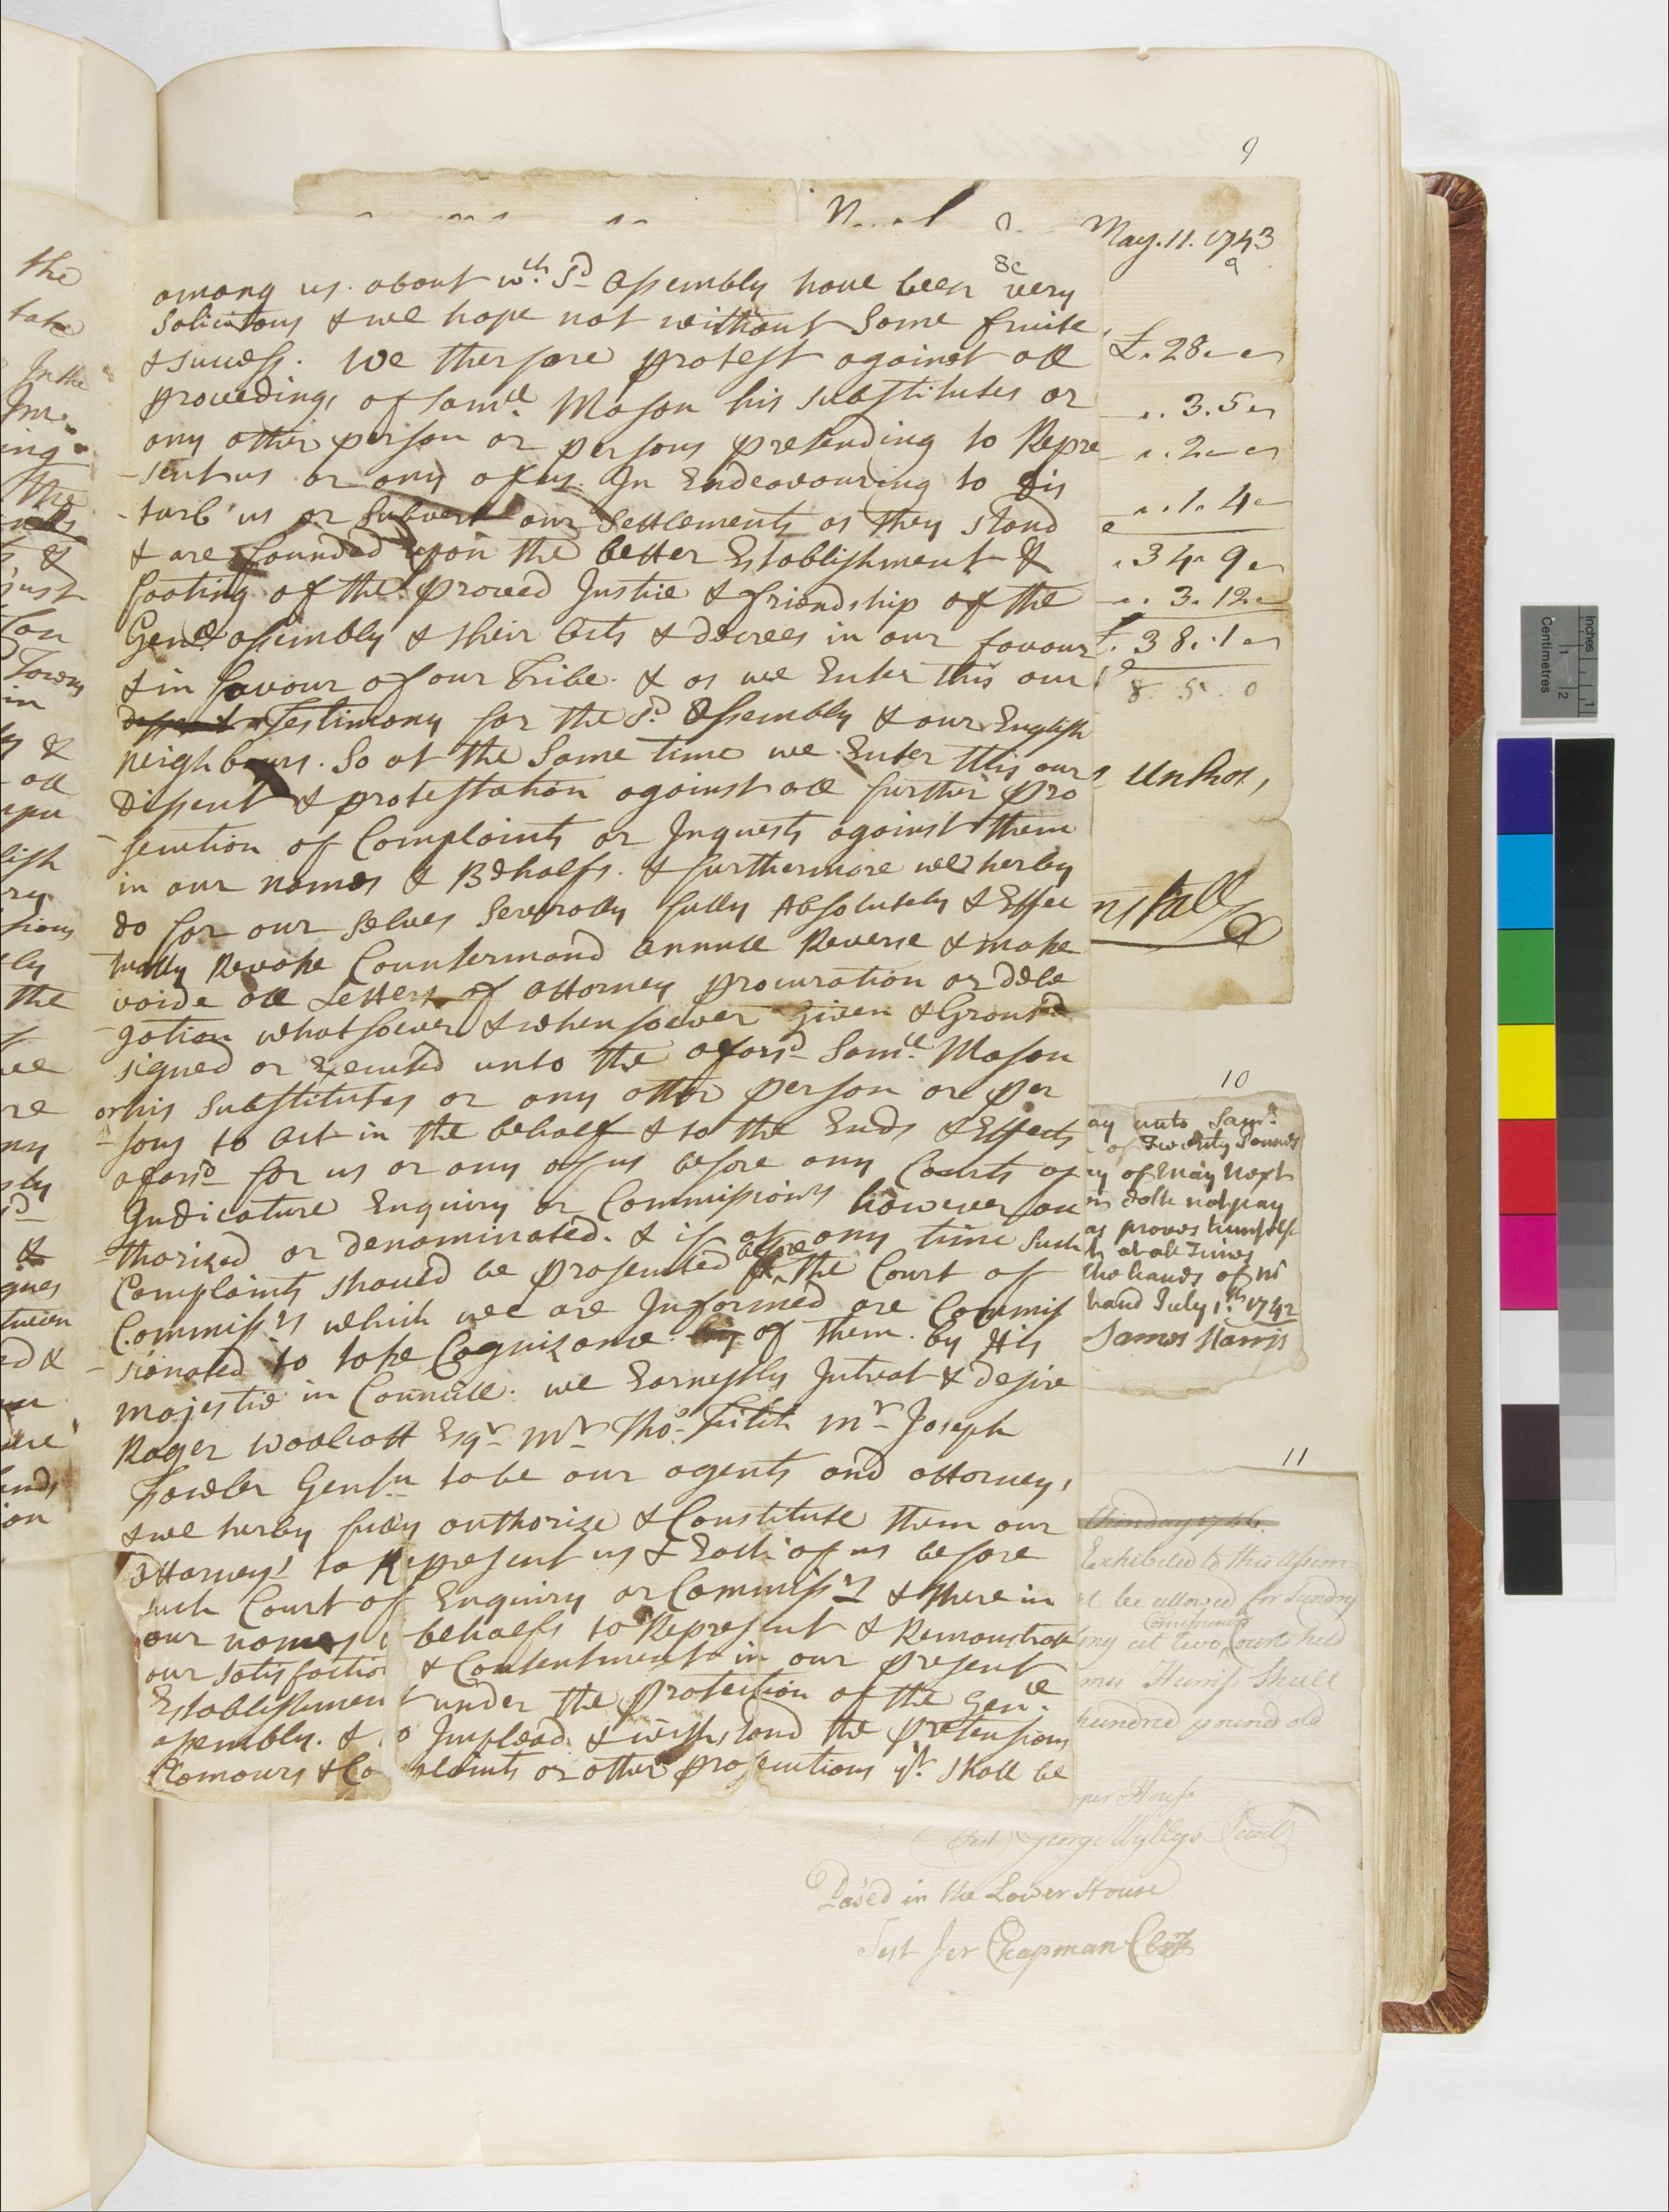 9
May. 11. 1743
9
8c
among us. about wch. Sd Assembly have been very
Solicitous & we hope not without Some fruite
& success. We therfore protest against all
proceedings of Samll. Mason his substitutes or
any other person or persons pretending to Repre
-sent us or any of us. In Endeavouring to dis
-turb us or Subvert our Settlements as they stand
& are founded upon the better Establishment &
footing of the proved Justice & friendship of the
Genll. assembly & their Acts & decrees in our favour
& in favour of our Tribe. & as we Enter this our
Testimony for the Sd. Assembly & our English
neighbours. So at the Same time we Enter this our
Dissent & protestation against all further pro
-secution of Complaints or Inquests against them
in our names & Behalfs. & furthermore we herby
do for our Selves Severally fully Absolutely & Effec
tually Revoke Countermand annull Reverse & make
voide all Letters of attorney procuration or dele
-gation whatsoever & whensoever Given & Granted
signed or Executed unto the aforsd Samll. Mason
or his substitutes or any other person or per
-sons to act in the behalf & to the Ends & Effects
aforsd for us or any of us before any Courts of
Judicature Enquiry or Commissionrs however au
-thorized or denominated. & if at any time such
Complaints should be prosecuted before the Court of
Commissrs which we are Informed are Commis
-sionated to take Cognizance of them. by His
Majestie in Councill. we Earnestly Intreat & desire
Roger Woolcott Esqr Mr Thos. Fitch Mr Joseph
Fowler Gentn to be our agents and attorneys
& we herby fully authorize & Constitute them our
Attorneys to Represent us & Each of us before
such Court of Enquiry or Commissrs & there in
our names behalfs to Represent & Remonstrate
our satisfaction & Contentment in our present
Establishment under the protection of the Genll.
assembly. & to Implead & withstand the pretensions
Clamours & Complaints or other prosecutions yt. shall be
£. 28.
3. 5
2
1. 4
34. 9
3. 12
£. 38. 1
8 5 0
nstall
10
ay unto Samll.
of Twenty Pounds
ay of May Next
doth not pay
as proves himself
at all Times
the hands of
hand July 1.th 1742
James Harris
11
Exhibited to this Assem
be allowed for Sundry
Commissiners
ing at two Courts held
mes Harriss Shall
hundred pound old
pper House
Test George Wyllys Secrety
Pased in the Lower House
Test Jer Chapman Clerk
the
take
In the
ing
the
&
just
Towns
in
&
all
lish
the